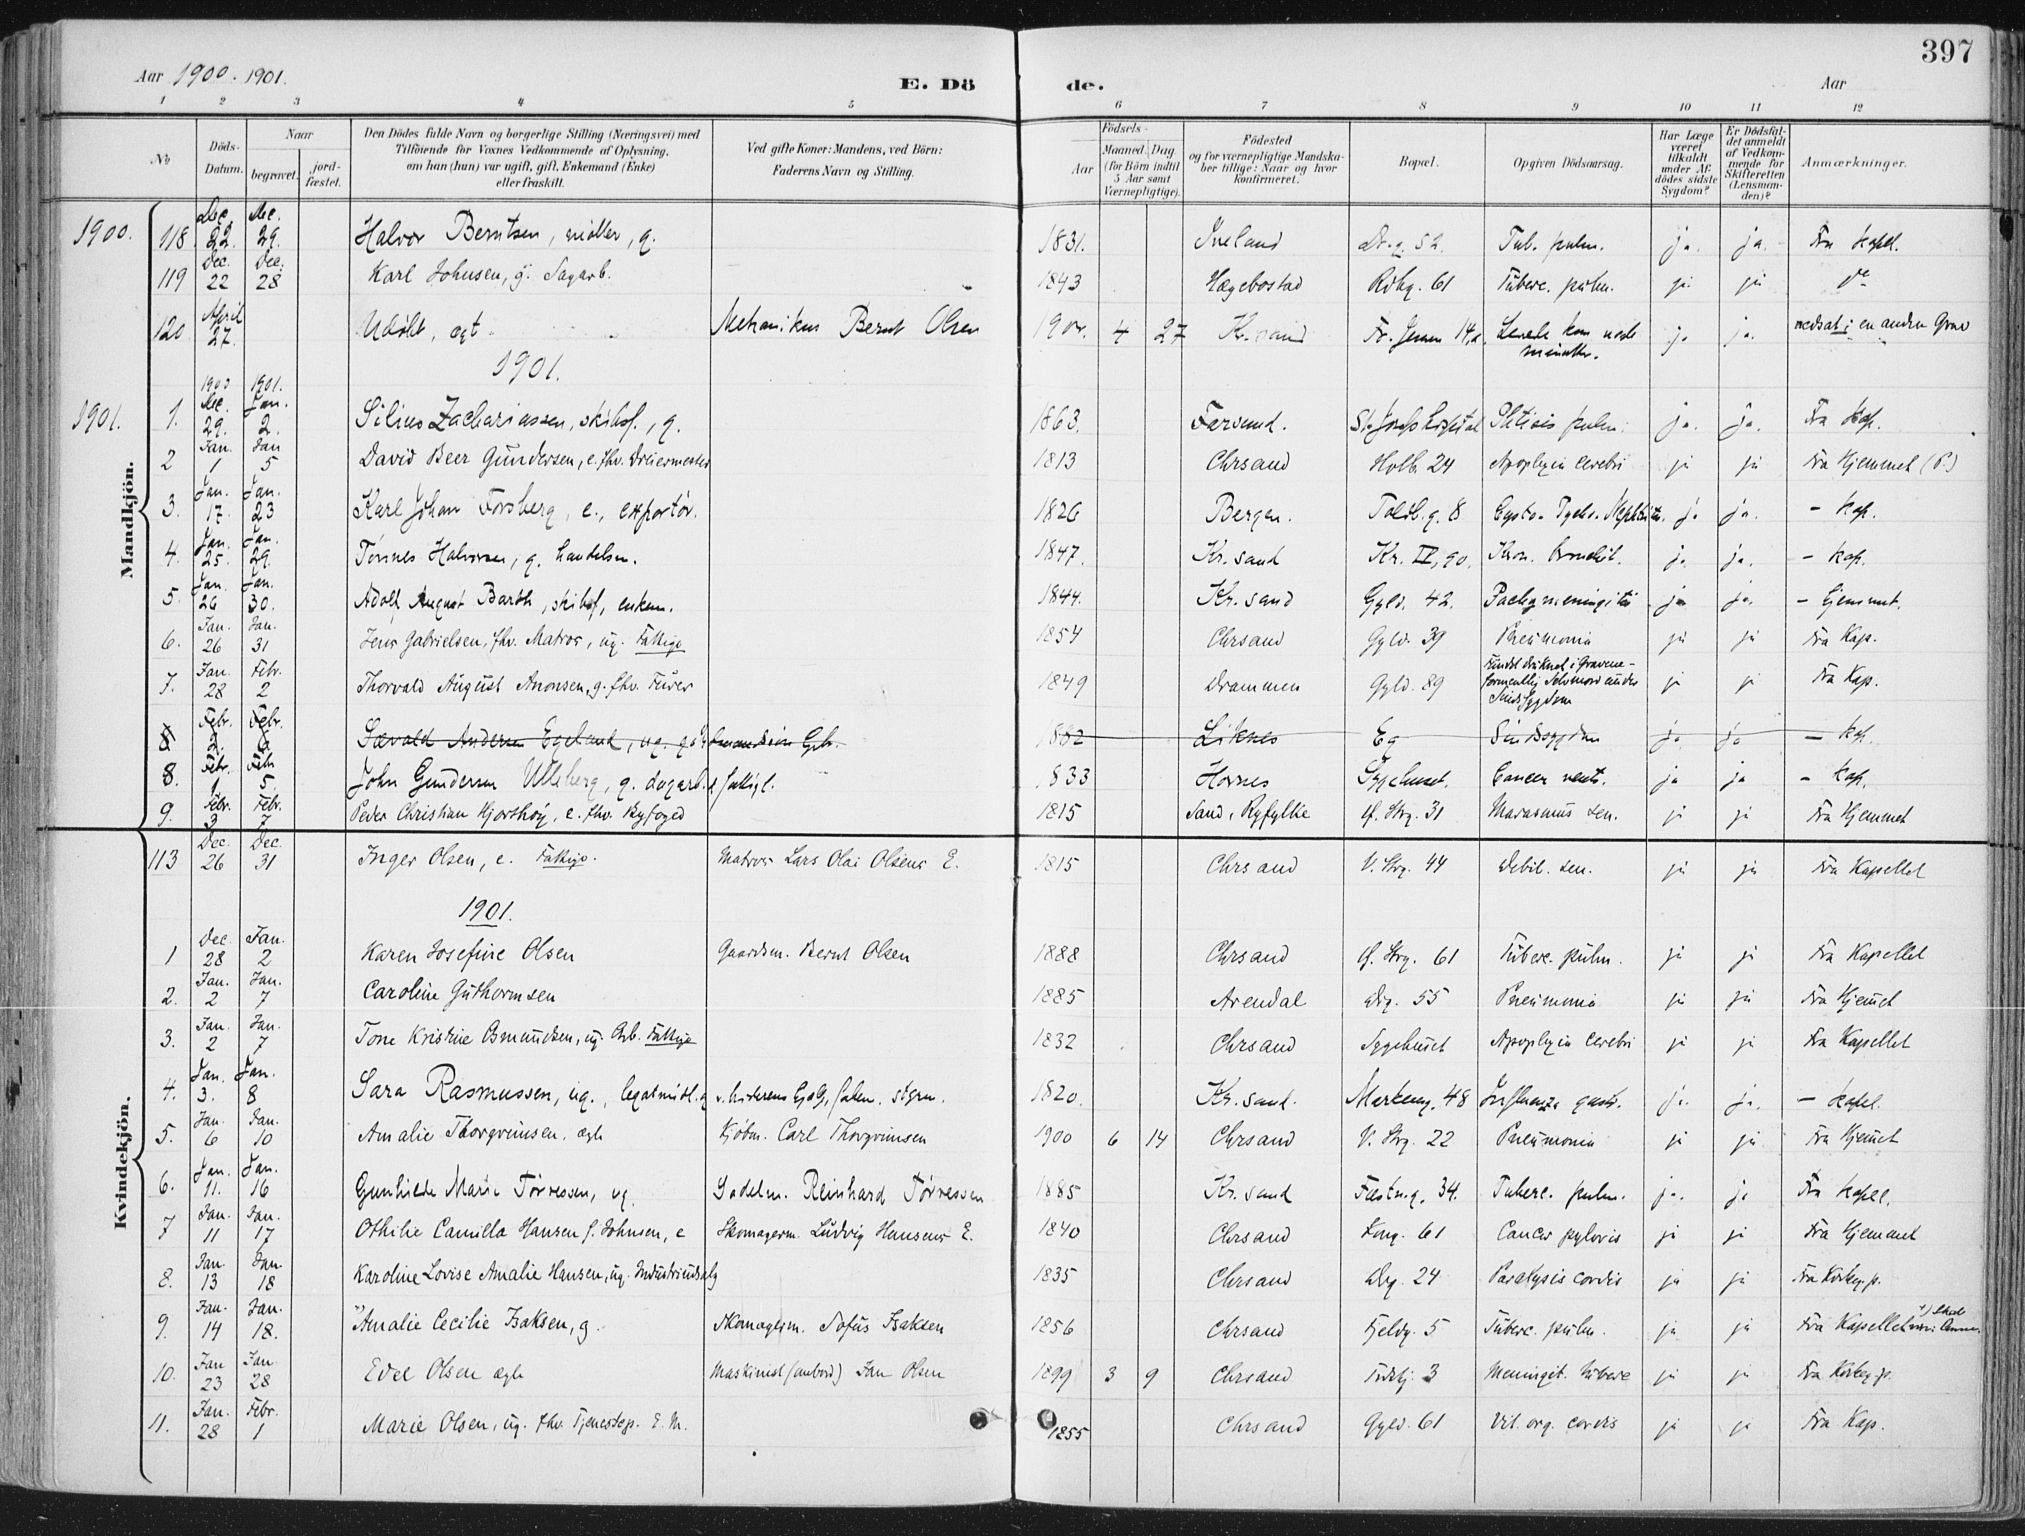 397
Aar 1900. 1901.
E. Dö de.
Aar
1 2 3 4 5 6 7 8 9 10 11 12
No
Döds-Datum.
Naar
begravet.
jord-fæstet.
Den Dödes fulde Navn og borgerlige Stilling (Næringsvei) med
Tilföiende for Voxnes Vedkommende af Oplysning,
om han (hun) var ugift, gift, Enkemand (Enke)
eller fraskilt.
Ved gifte Koner: Mandens, ved Börn:
Faderens Navn og Stilling.
Födsels-
Aar
Maaned. Dag.
(for Börn indtil
5 Aar samt
Værnepligtige).
Födested
og for værnepligtige Mandska-
ber tillige: Naar og hvor
konfirmeret.
Bopæl.
Opgiven Dödsaarsag.
Har Læge
været
tilkaldt
under Af-
dödes sidste
Sygdom?
Er Dödsfal-
det anmeldt
af Vedkom-
mende for
Skifteretten
(Lensman-
den)?
Anmærkninger.
Mandkjön.
1900. 118 Dec. 22. Dec. 29. Halvor Berntsen, møller, g. 1831. Iveland Dr.g. 52. Tub. pulm. ja. ja. Fra Kapel.
119 Dec. 22 Dec. 28 Karl Johnsen, g. Sagarb. 1843 Hægebostad Rdhg. 61 Tuberc. pulm. ja. ja do
120 April 27. Udøbt, egt Mekanikus Bernt Olsen 190 4 27 Kr.sand Fr. 14, Levede kun nogle minutter. ja ja. nedsat i en anden Grav
1901.
1900 1901.
1901. 1. Dec. 29. Jan. 2. Silius Zachariassen, skibsf., g. 1863. Farsund. St. Josephs hospital Phtisis pulm. ja. ja. Fra Kap.
2 Jan. 1 Jan 5 David Beer Gundersen, e. fhv. Dreiermester 1813 Chrsand Holb. 24 Apoplexia cerebri ja ja Fra Hjemmet (P.)
3. Jan. 17. Jan. 23 Karl Johan Forsberg, e., exportør. 1826 Bergen. Toldb.g. 8 Cysto-Pyelo-Nephritis. ja ja. - Kap.
4. Jan. 25. Jan. 29. Tønnes Halvorsen, g. handelsm. 1847. Kr.sand Kr. IV, 90. Kron. bronchit. ja ja. - kap.
5. Jan. 26 Jan. 30. Adolf August Barth, skibsf, enkem. 1844. Kr.sand Gyld. 42. Pachymeningitis ja ja. - hjemmet.
6. Jan. 26 Jan. 31 Jens Gabrielsen, fhv. Matros, ug. Fattige 1854 Chrsand Gyld. 39 Pneumonia ja ja Fra Kap.
7. Jan. 28 Febr. 2 Thorvald August Aronsen, g. fhv. 1849 Drammen Gyld. 89 Fundet druknet i Gravene - formentlig Selvmord under Sindssygdom ja ja Fra Kap.
8 Febr. 2. Febr. 6 Sævald Andersen Egeland, ug. 1882 Liknes Eg Sindssygdom ja ja - kap.
8. Febr. 1 Febr 5. John Gundersen Ulleberg, g. dagarb. fattigl. 1833 Hornes Sygehuset. Cancer ventr. ja ja - Kap.
9. Febr. 3 Febr. 7 Peder Christian Hjorthöy, e. fhv. Byfoged 1815 Sand, Ryfylke Ø. Strg. 31 Marasmus sen. ja ja Fra Hjemmet
Kvindekjön.
113 Dec. 26 Dec. 31 Inger Olsen, e. Fattige. Matros Lars Olai Olsens E. 1815 Chrsand V. Strg. 44 Debil. sen. ja ja Fra Kapellet
1901.
1 Dec. 28 Jan. 2 Karen Josefine Olsen Gaardsm. Bernt Olsen 1888 Chrsand Ø. Strg. 61 Tuberc. pulm. ja ja Fra Kapellet
2. Jan. 2 Jan. 7 Caroline Guthormsen 1885 Arendal Drg. 55 Pneumonia ja ja Fra Hjemmet
3. Jan. 2 Jan. 7 Tone Kristine Osmundsen, ug. Arb. Fattige 1832 Chrsand Sygehuset Apoplexia cerebri ja ja Fra Kapellet
4. Jan. 3. Jan. 8 Sara Rasmussen, ug., legatnydt. 1820. Kr.sand. Markeng. 48 Influenza gastr. ja. ja. - Kapel.
5. Jan. 6 Jan. 10 Amalie Thorgrimsen, egte Kjøbm. Carl Thorgrimsen 1900 6 14 Chrsand V. Strg. 22 Pneumonia ja ja Fra Hjemmet
6. Jan. 11. Jan. 16 Gunhilde Marie Tørressen, ug. Sadelm. Reinhard Tørressen 1885 Kr.sand Fæstn.g. 34. Tuberc. pulm. ja. ja Fra Kapel.
7 Jan. 11 Jan. 17 Othilie Camilla Hansen f. Johnsen, e Skomagerm. Ludvig Hansens E. 1840 Chrsand Kong. 61 Cancer pyloris ja ja Fra Hjemmet
8. Jan. 13 Jan 18 Karoline Lovise Amalie Hansen, ug. Industriudsalg 1835 Chrsand Drg. 24 Paralysis cordis ja ja Fra Kirkegp.
9. Jan. 14 Jan. 18. Amalie Cecilie Isaksen, g. Skomagerm. Tofus Isaksen 1856 Chrsand Fjeldg. 5 Tuberc. pulm. ja ja Fra Kapellet
10. Jan 23 Jan. 28 Edel Olsen egte Maskinist (ombord) Jan Olsen 1899 3 9 Chrsand 3 Meningit. tuberc ja ja Fra Kirkegp.
11. Jan. 28 Febr. 1 Marie Olsen, ug. fhv. Tjenestep. E. M. 1855 Chrsand Gyld. 61 Vit. org. cordis ja ja Fra Kap.